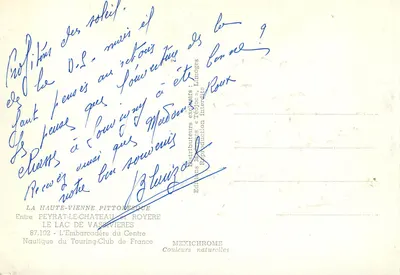 Profitons des soleil
de la D.S. mais il
faut penser au retour
Je pense que l'ouverture de la
chasse à Souvigny a été bonne ?
Recevez ainsi que Madame Roux
notre bon souvenir
LA HAUTE-VIENNE PITTORESQUE
Entre PEYRAT-LE-CHATEAU et ROYERE
LE LAC DE VASSIVIERES
87.102 - L'Embarcadère du Centre
Nautique du Touring-Club de France
MEXICHROME
Couleurs naturelles
"Théojac", Limoges
Reproduction interdite